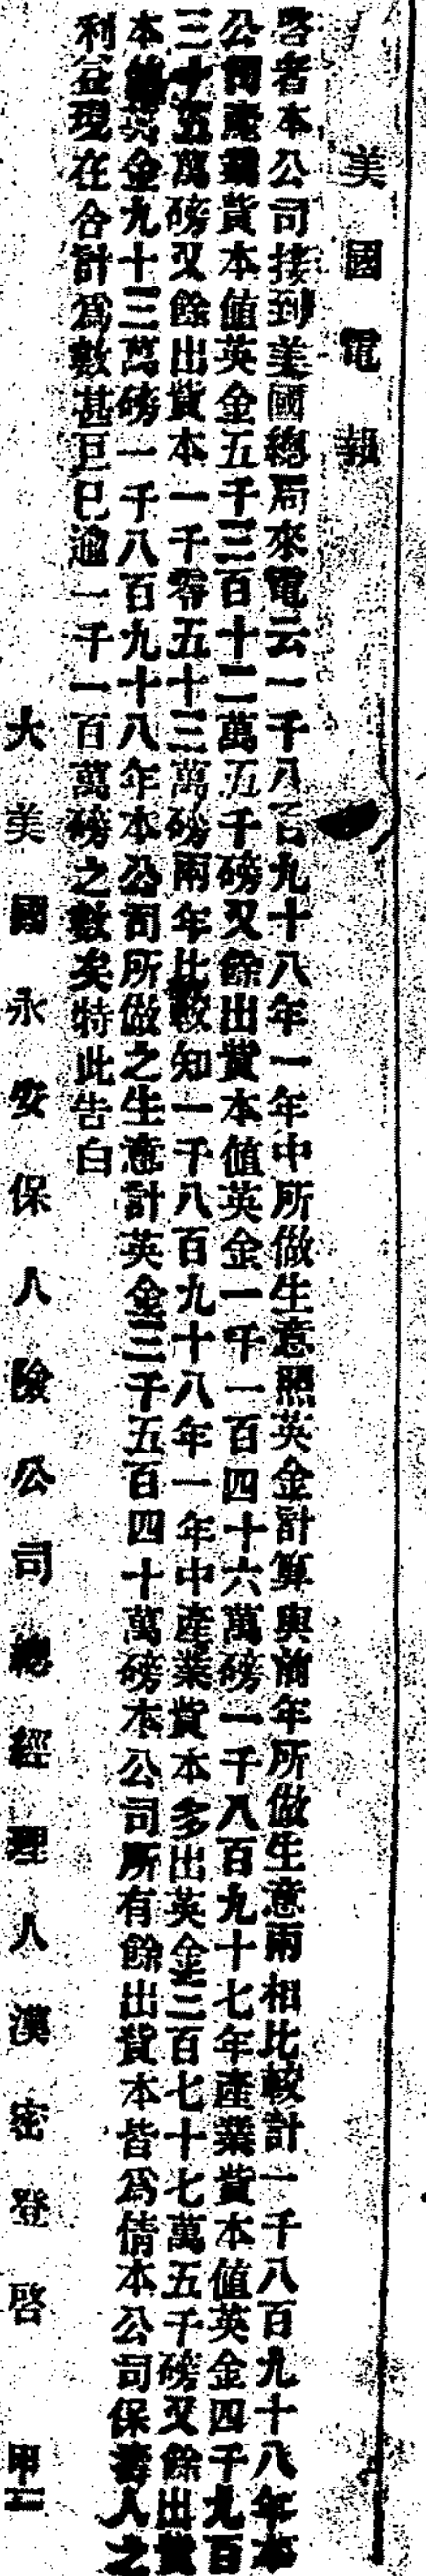 美國電報
啓者本公司接到美國總局來電云一千八百九十八年一年中所做生意照英金計算與前年所做生意兩相比較計一千八百九十八年本
公司產業貲本值英金五千三百十二萬五千磅又餘出貲本值英金一千一百四十六萬磅一千八百九十七年產業貲本值英金四千九百
三十五萬磅又餘出貲本一千零五十三萬磅兩年比較知一千八百九十八年一年中產業貲本多出英金三百七十七萬五千磅又餘出貲
本英金九十三萬磅一千八百九十八年本公司所做之生意計英金三千五百四十萬磅本公司所有餘出貲本皆爲倩本公司保壽人之
利益現在合計爲數甚巨已逾一千一百萬磅之數矣特此告白
大美國永安保人險公司總經理人漢密登啓
甲二